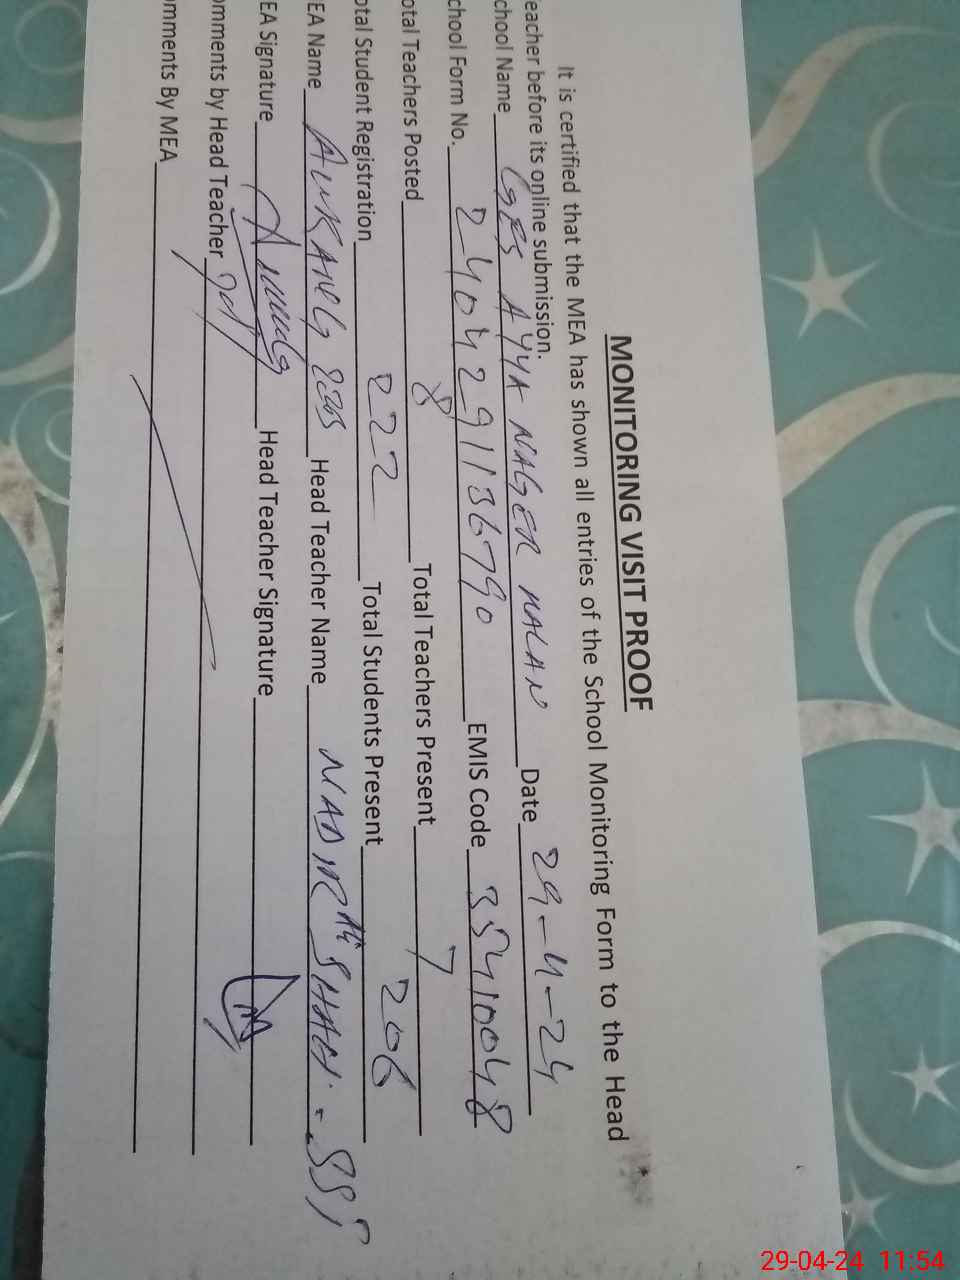 MONITORING VISIT PROOF
It is certified that the MEA has shown all entries of the School Monitoring Form to the Head
eacher before its online submission.
chool Name GES AYYA NAGER KALAN Date 29-4-24
chool Form No. 2404291136790 EMIS Code 3541048
otal Teachers Posted 8 Total Teachers Present 7
otal Student Registration 222 Total Students Present 206
EA Name Head Teacher Name NADIR SHAH
EA Signature Head Teacher Signature
omments by Head Teacher
omments By MEA
29-04-24 11:54